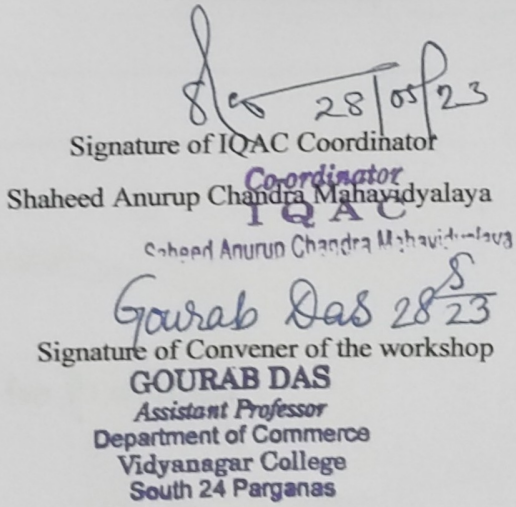 28/05/23
Signature of IQAC Coordinator
Co-ordinator
Shaheed Anurup Chandra Mahavidyalaya
I Q A C
Saheed Anurup Chandra Mahavidyalaya
Gourab Das 28/5/23
Signature of Convener of the workshop
GOURAB DAS
Assistant Professor
Department of Commerce
Vidyanagar College
South 24 Parganas